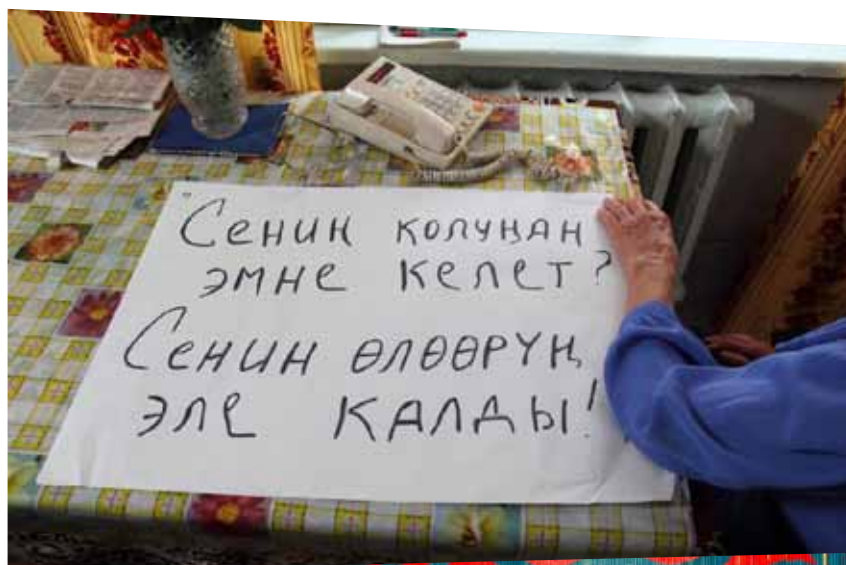 "Сенин колуңан
эмне келет?
Сенин өлөөрүң
эле калды!